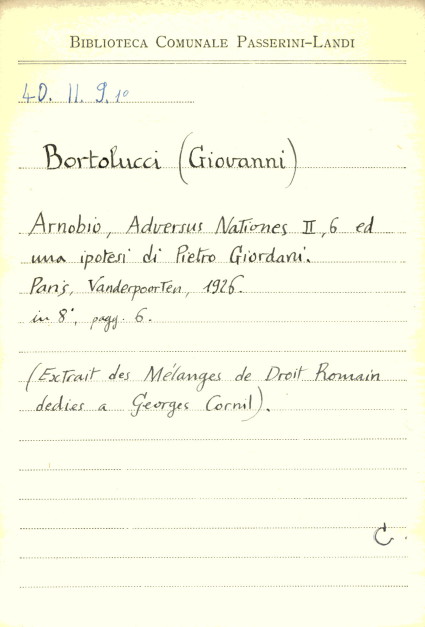 BIBLIOTECA COMUNALE PASSERINI-LANDI
40. II. 9. 10
Bortolucci (Giovanni)
Arnobio, Adversus Nationes II, 6 ed
una ipotesi di Pietro Giordani.
Paris, Vanderpoorten, 1926.
in 8°, pagg. 6.
(Extrait des Mélanges de Droit Romain
dedies a Georges Cornil).
C.